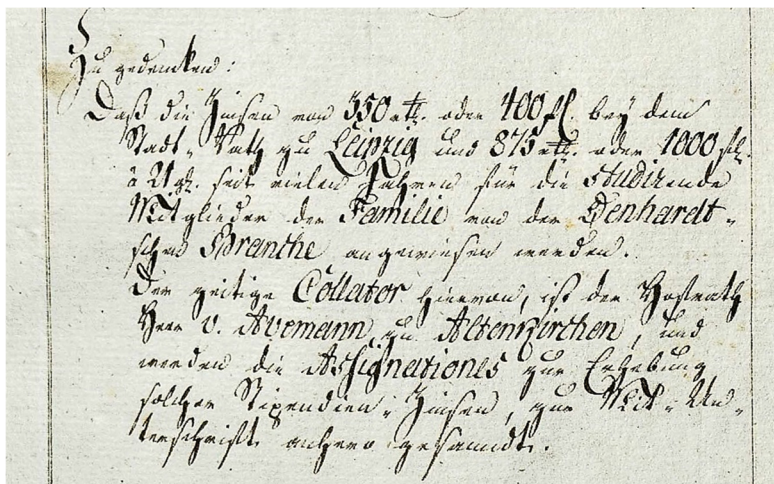 Zu gedenken:
Daß die Zinsen von 350 rtl. oder 400 fl. bey dem
Stadt-Rath zu Leipzig und 875 rtl. oder 1000 fl.
à 21 gr. seit vielen Jahren für die Studirende
Mitglieder der Familie von der Denhardt-
schen Branche angewiesen werden.
Der zeitige Collator hiervon, ist der Hofrath
Herr v. Avemann zu Altenkirchen, und
werden die Assignationes zur Erhebung
solcher Stipendien-Zinsen, zur Mit-Un-
terschrift anhero gesandt.